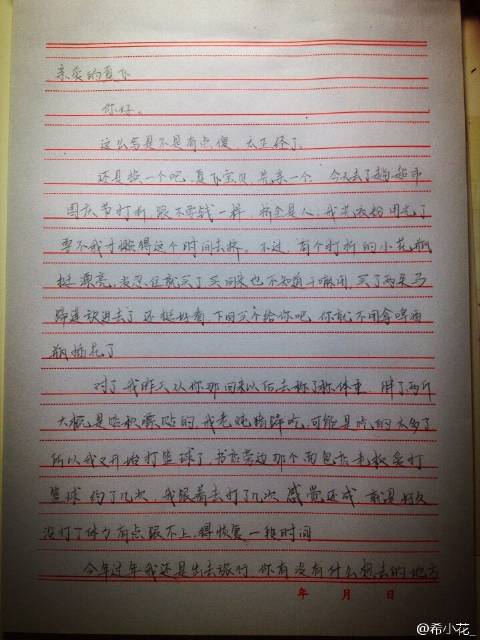 亲爱的夏下
你好。
这么写是不是有点傻 太正经了。
还是换一个吧，夏下宝贝，先亲一个 今天去了趟超市
国庆节打折，跟不要钱一样，挤全是人，我洗衣粉用完了
要不我才懒得这个时间去挤。不过，有个打折的小花瓶
挺漂亮，没忍住就买了 买回来也不知道干嘛用，买了两朵马
蹄莲放进去了 还挺好看，下回买个给你吧 你就不用拿啤酒
瓶插花了
对了 我昨天从你那回来以后去称了称体重 胖了两斤
大概是 的，我老 吃，可能是吃的太多了
所以我又开始打篮球了，书店旁边那个面包店老板爱打
篮球 约了几次 我跟着去打了几次 感觉还成 就是好久
没打了体力有点跟不上，得恢复一段时间
今年过年我还是出去旅行 你有没有什么想去的地方
年 月 日
@希小花_